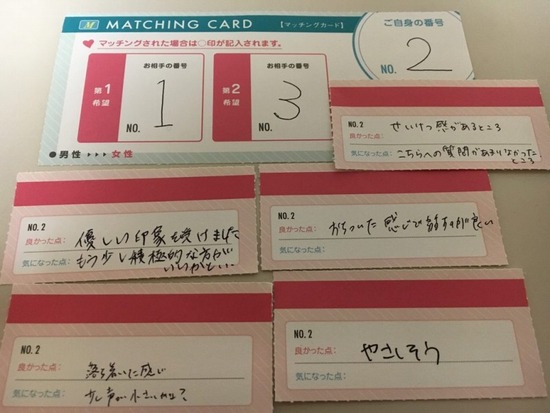 M MATCHING CARD 【マッチングカード】
ご自身の番号
NO. 2
♥マッチングされた場合は○印が記入されます。
第1希望
お相手の番号
NO. 1
第2希望
お相手の番号
NO. 3
●男性 ▶▶▶ 女性
NO.2
良かった点: せいけつ感があるところ
気になった点: こちらへの質問があまりなかったところ
NO.2
良かった点: 優しい印象を受けました
気になった点: もう少し積極的な方が
いいかと
NO.2
良かった点: おちついた感じで
が良い
気になった点:
NO.2
良かった点: 落ち着いた感じ
気になった点: 少し声が小さいかな?
NO.2
良かった点: やさしそう
気になった点: